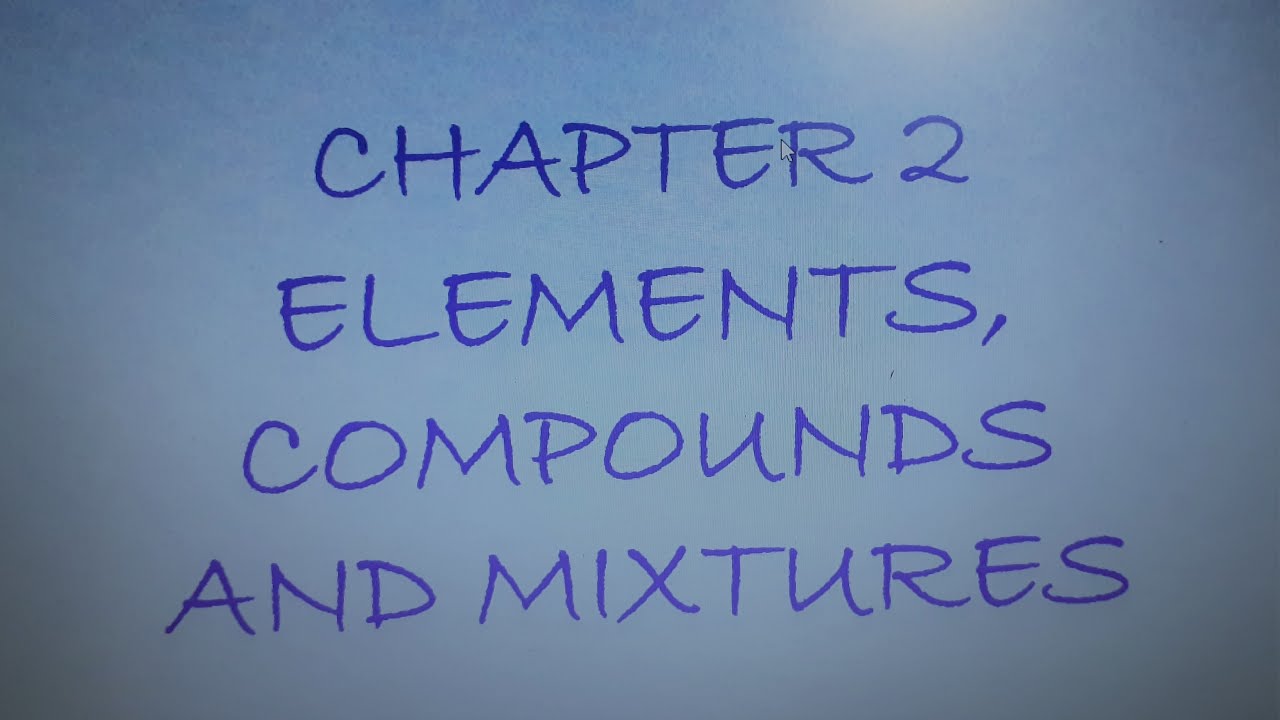 CHAPTER 2
ELEMENTS,
COMPOUNDS
AND MIXTURES